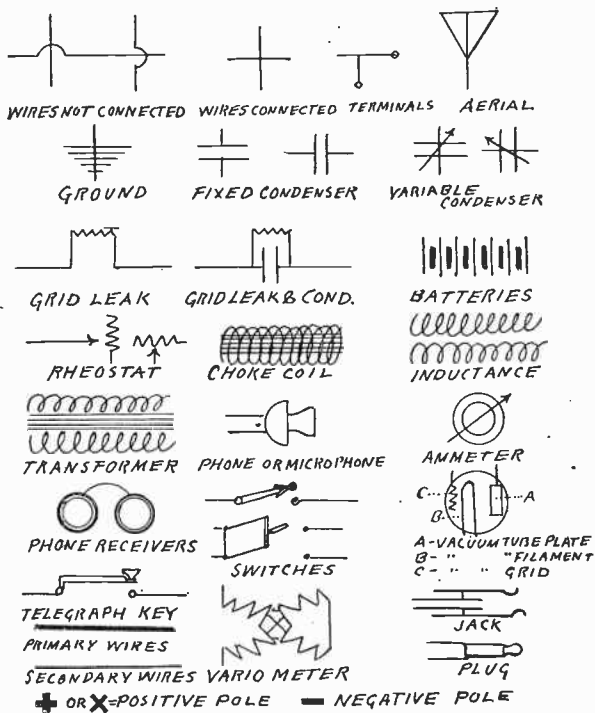 WIRES NOT CONNECTED WIRES CONNECTED TERMINALS AERIAL
GROUND FIXED CONDENSER VARIABLE CONDENSER
GRID LEAK GRID LEAK & COND. BATTERIES
RHEOSTAT CHOKE COIL INDUCTANCE
TRANSFORMER PHONE OR MICROPHONE AMMETER
C A
B
PHONE RECEIVERS SWITCHES
A-VACUUM TUBE PLATE
B- " " FILAMENT
C- " " GRID
TELEGRAPH KEY
JACK
PRIMARY WIRES
SECONDARY WIRES VARIO METER PLUG
+ OR X=POSITIVE POLE - NEGATIVE POLE